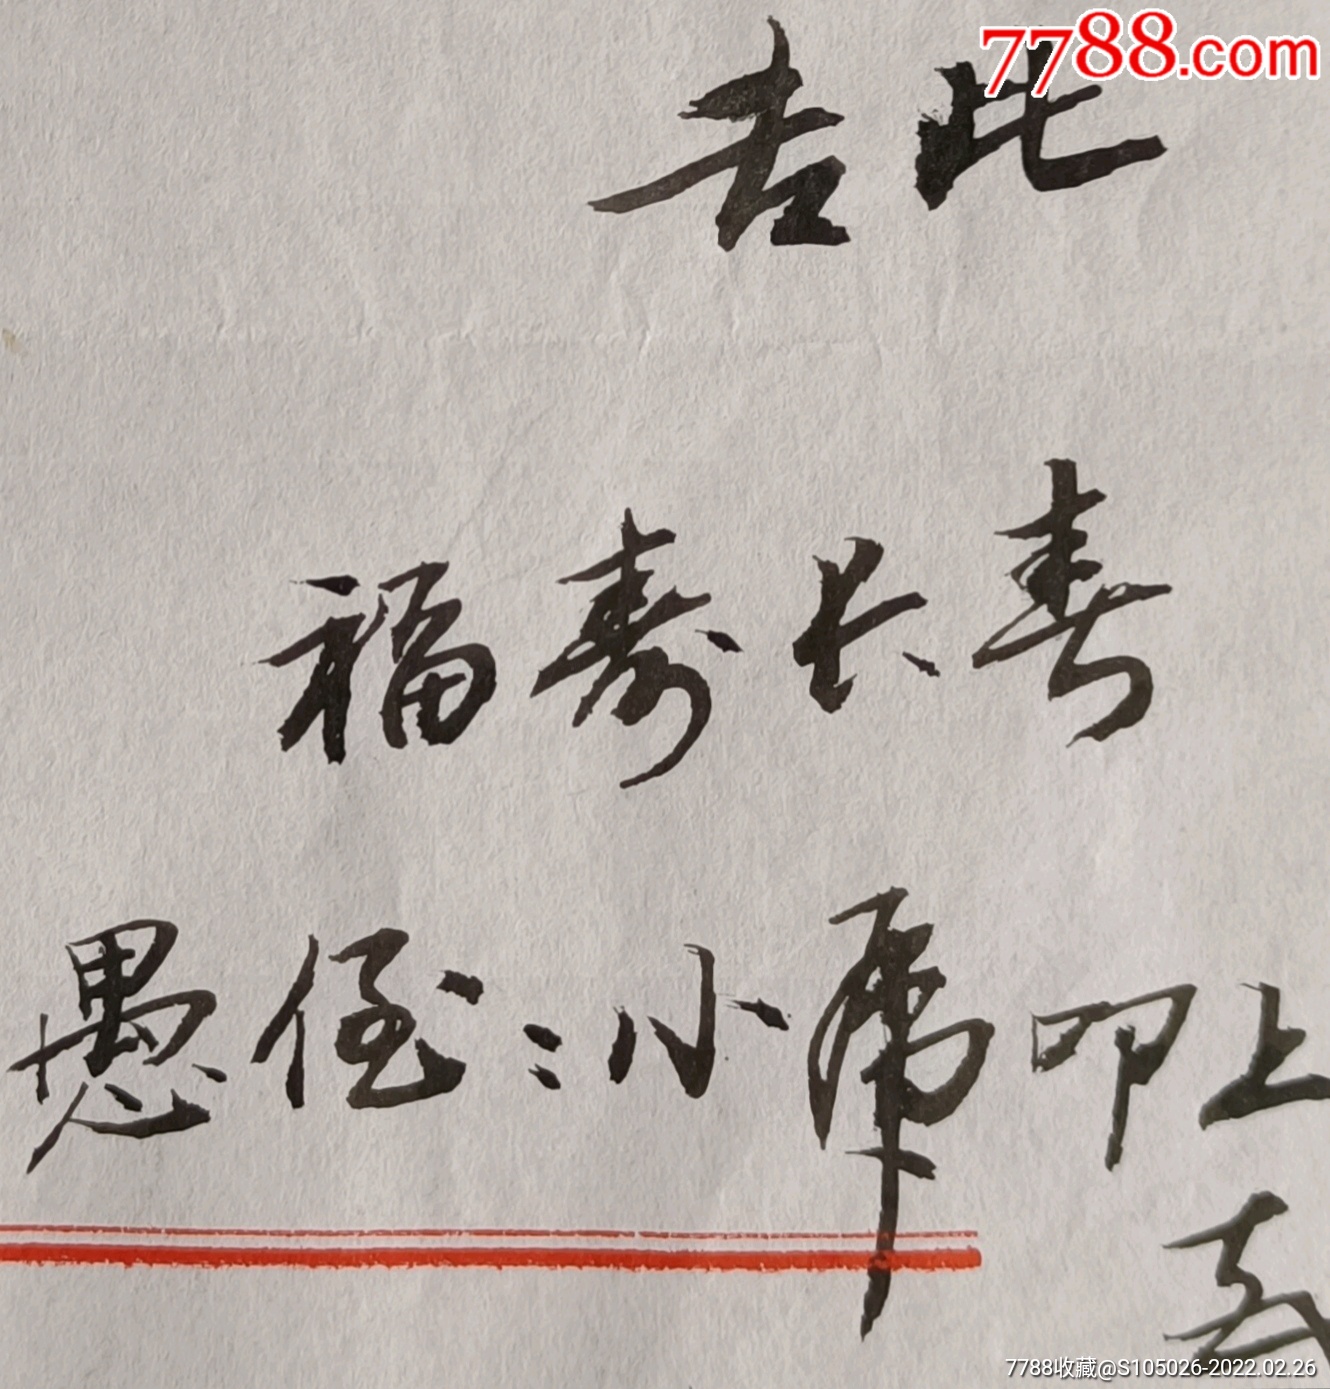 7788.com
吉此
福寿长春
愚侄:小虎叩上
7788收藏@S105026-2022.02.26